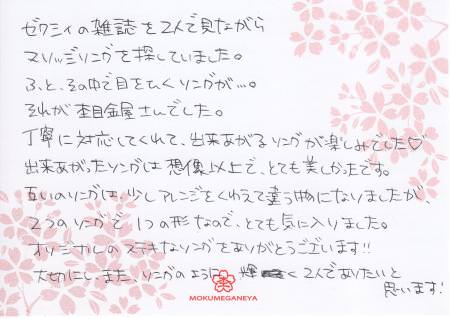 ゼクシィの雑誌を2人で見ながら
マリッジリングを探していました。
ふと、その中で目をひくリングが…。
それが杢目金屋さんでした。
丁寧に対応してくれて、出来あがるリングが楽しみでした♡
出来あがったリングは想像以上で、とても美しかったです。
互いのリングは、少しアレンジをくわえて違う物になりましたが、
2つのリングで1つの形なので、とても気に入りました。
オリジナルのステキなリングをありがとうございます!!
大切にし、また、リングのように輝く2人でありたいと
思います!
MOKUMEGANEYA